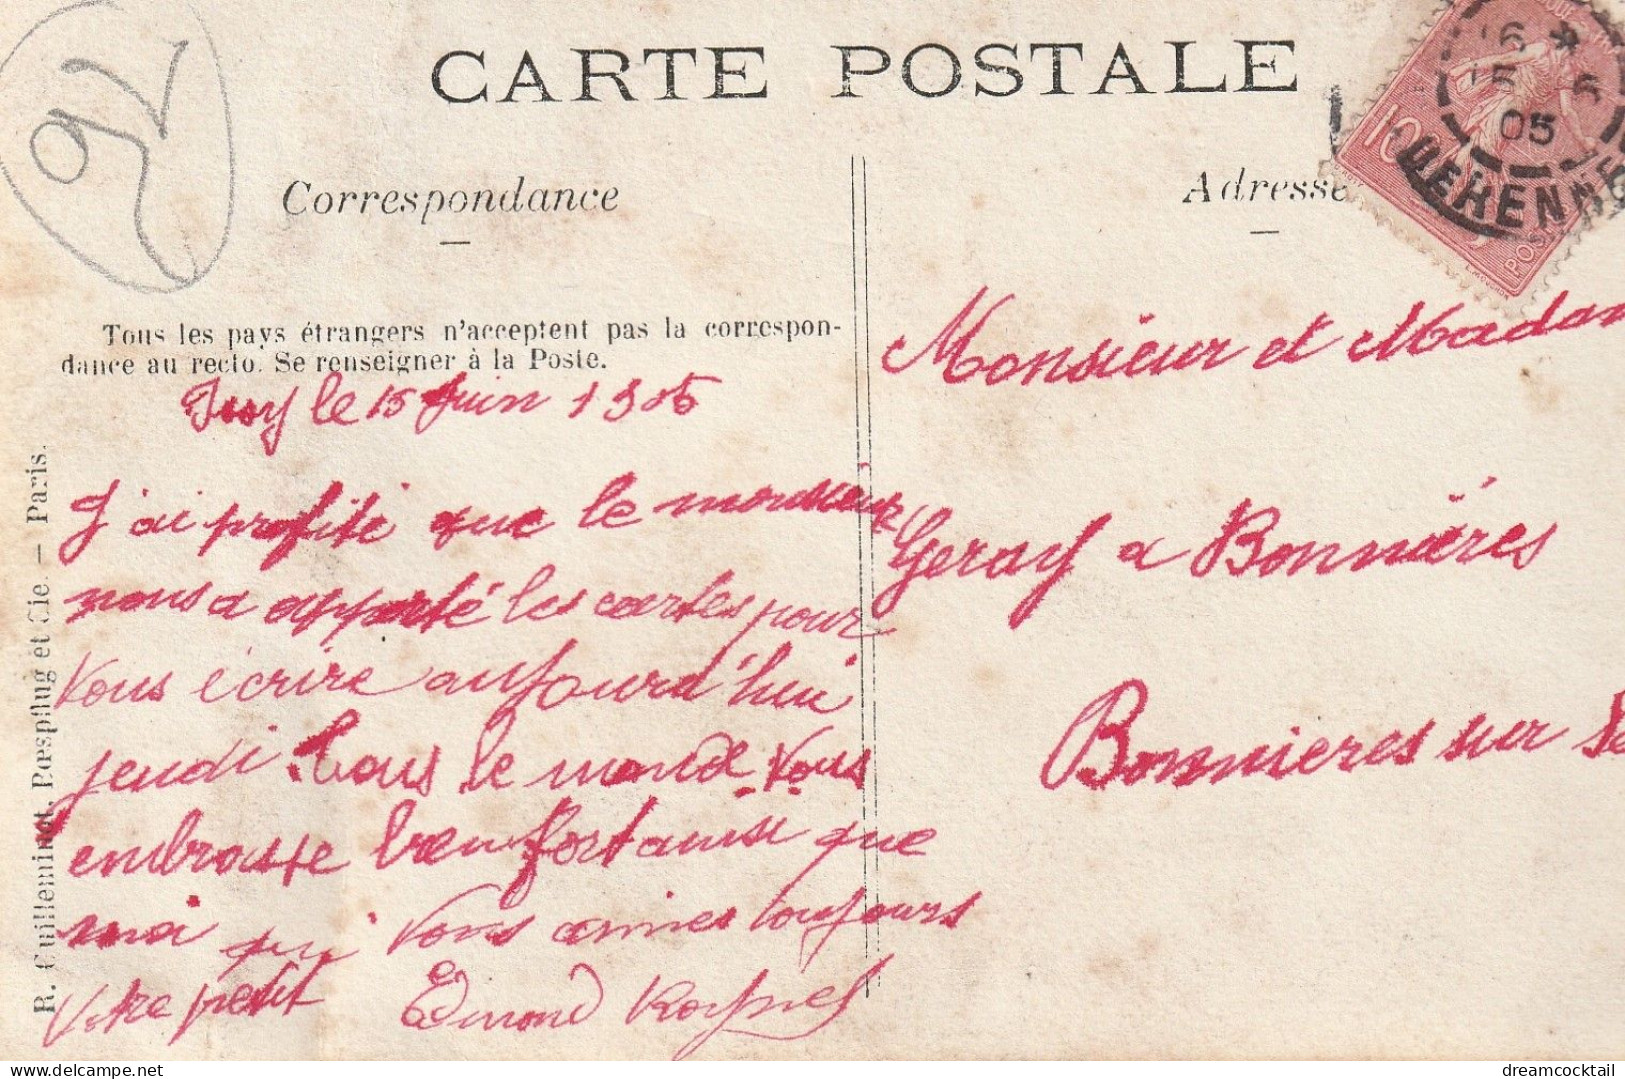 92
CARTE POSTALE
Correspondance
Adresse
10
POSTES
15 6
05
Tous les pays étrangers n'acceptent pas la correspon-
dance au recto. Se renseigner à la Poste.
Issy le 15 Juin 1905
J'ai profité que le monsieur
nous a apporté les cartes pour
vous écrire aujourd'hui
jeudi. Tous le monde vous
embrasse bien fort ainsi que
moi qui vous aimes toujours
Votre petit Edmond
Monsieur et Madam
Geray a Bonnières
Bonnieres sur Se
R. Guilleminot, Bœspflug et Cie. — Paris.
dreamcocktail